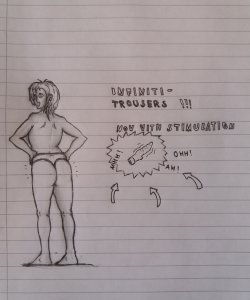 INFINITI-
TROUSERS !!!
NOW WITH STIMULATION
AHHH!
OHH!
AH!